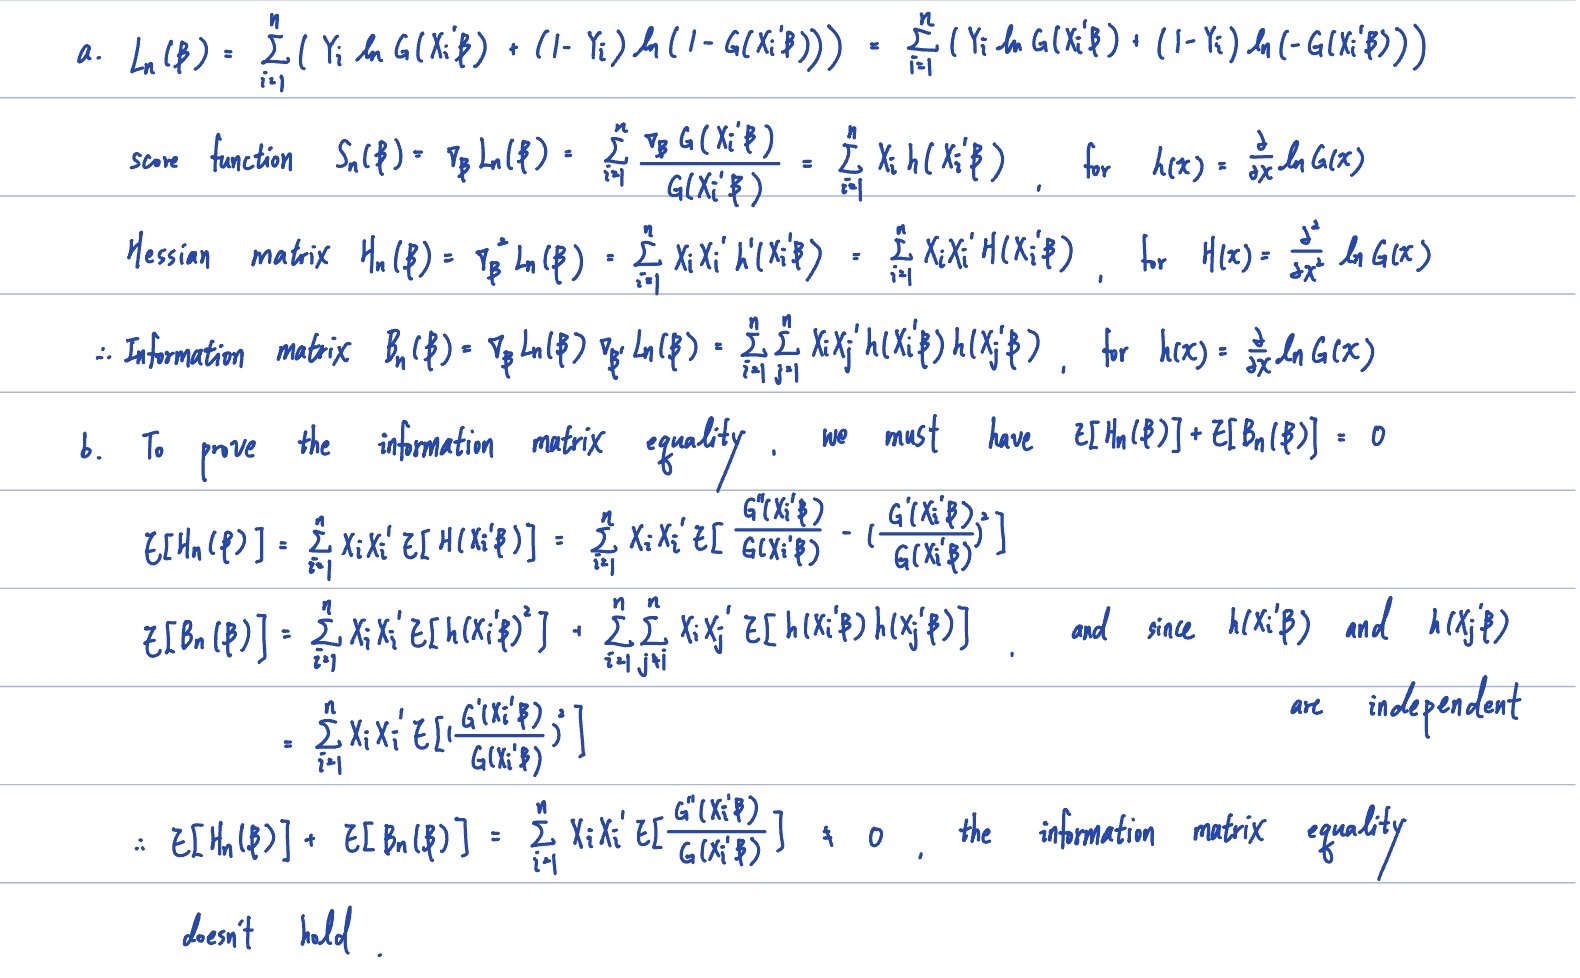 a. Ln(β) = Σ_{i=1}^{n} ( Yi ln G(Xi'β) + (1- Yi) ln (1- G(Xi'β))) = Σ_{i=1}^{n} (Yi ln G(Xi'β) + (1-Yi) ln (-G(Xi'β)))
score function Sn(β) = ∇β Ln(β) = Σ_{i=1}^{n} ∇β G(Xi'β) / G(Xi'β) = Σ_{i=1}^{n} Xi h(Xi'β) , for h(x) = ∂/∂x ln G(x)
Hessian matrix Hn(β) = ∇β² Ln(β) = Σ_{i=1}^{n} XiXi' h'(Xi'β) = Σ_{i=1}^{n} XiXi' H(Xi'β) , for H(x) = ∂²/∂x² ln G(x)
∴ Information matrix Bn(β) = ∇β Ln(β) ∇β' Ln(β) = Σ_{i=1}^{n} Σ_{j=1}^{n} XiXj' h(Xi'β) h(Xj'β) , for h(x) = ∂/∂x ln G(x)
b. To prove the information matrix equality , we must have E[Hn(β)] + E[Bn(β)] = 0
E[Hn(β)] = Σ_{i=1}^{n} XiXi' E[H(Xi'β)] = Σ_{i=1}^{n} XiXi' E[ G''(Xi'β) / G(Xi'β) - ( G'(Xi'β) / G(Xi'β) )² ]
E[Bn(β)] = Σ_{i=1}^{n} XiXi' E[h(Xi'β)²] + Σ_{i=1}^{n} Σ_{j≠i}^{n} XiXj' E[h(Xi'β) h(Xj'β)] . and since h(Xi'β) and h(Xj'β)
are independent
= Σ_{i=1}^{n} XiXi' E[( G'(Xi'β) / G(Xi'β) )²]
∴ E[Hn(β)] + E[Bn(β)] = Σ_{i=1}^{n} XiXi' E[ G''(Xi'β) / G(Xi'β) ] ≠ 0 , the information matrix equality
doesn't hold .